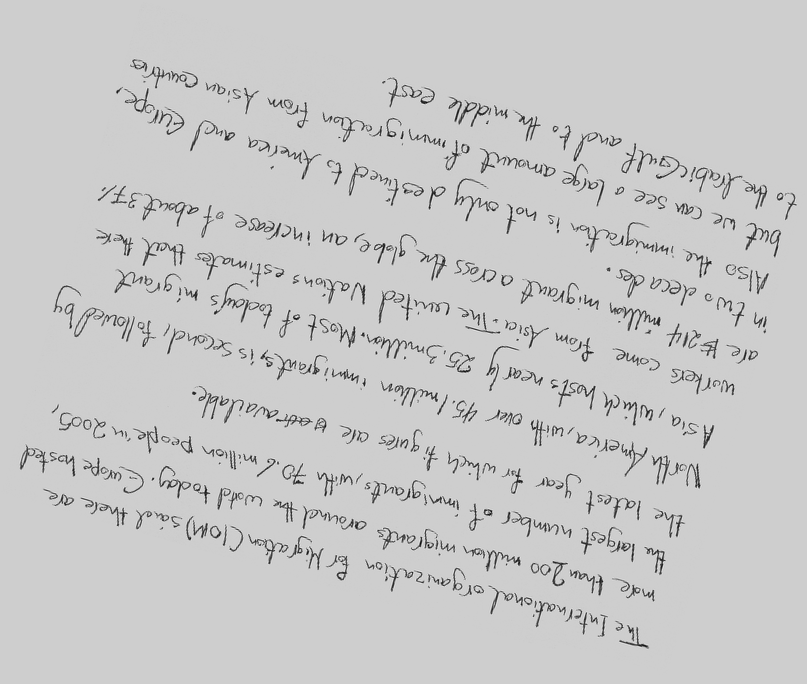 The International organization for Migration (IOM) said there are
more than 200 million migrants around the world today. Europe hosted
the largest number of immigrants, with 70.6 million people in 2005,
the latest year for which figures are available.
North America, with over 45.1 million immigrants, is second, followed by
Asia, which hosts nearly 25.3 million. Most of today's migrant
workers come from Asia. The United Nations estimates that there
are 214 million migrant across the globe, an increase of about 37%
in two decades.
Also the immigration is not only destined to America and Europe,
but we can see a large amount of immigration from Asian countries
to the Arabic Gulf and to the middle east.